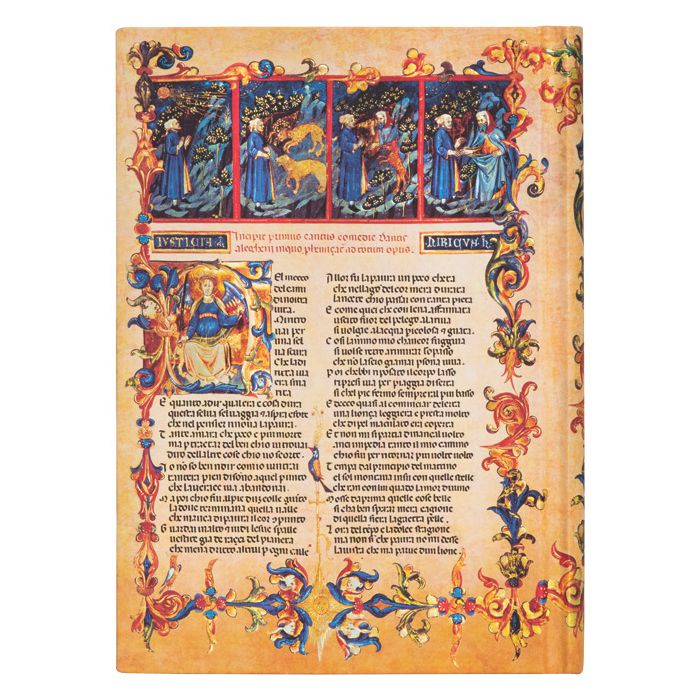 IUSTICIA
Incipit primus cantus comedie Dantis
DIRIGUS
aleghem in quo prohemizat ad totum opus.
El mecco
del cami
di nostra
vita.
Mi ritro
vai per
una sel
va scura
Che la di
ritta via
era sma
rita
E quanto a dir qual era e cosa dura
questa selva selvaggia e aspra e forte
che nel pensier rinova la paura.
Tanto amara che poco e piu morte
ma per tractar del ben chio vi trovai
diro dell altre cose chio vi o scorte.
Io no so ben ridir comio vi ntrai
tant era pien di sonno a quel punto
che la verace via abandonai.
Ma poi chio fui al pie d un colle giunto
la dove terminava quella valle
che mavea di paura il cor compunto
Guardai in alto e vidi le sue spalle
vestite gia de raggi del pianeta
che mena dritto altrui per ogni calle
Allor fu la paura un poco cheta
che nel lago del cor mera durata
la nocte chio passai con tanta pieta
E come quei che con lena affannata
uscito fuor del pelago a la riva
si volge a lacqua pericolosa e guata.
Cosi lanimo mio chancor fuggiva
si volse retro a rimirar lo passo
che no lascio giamai persona viva.
Poi chebbi riposato il corpo lasso
ripresi via per la piaggia diserta
si chel pie fermo sempre era il piu basso
Et ecco quasi al cominciar de lerta
una lonça leggiera e presta molto
che di pel maculato era coperta
Et non mi si partia dinançi al volto
anci impedia tanto il mio camino
chio fui per ritornar piu volte volto
Tempo era dal principio del matino
el sol montava su con quelle stelle
cheran con lui quando lamor divino
Mosse da prima quelle cose belle
si cha ben sperar mera cagione
di quella fiera la gaietta pelle.
Lora del tempo e la dolce stagione
ma non si che paura no mi desse
la vista che maparve dun lione.